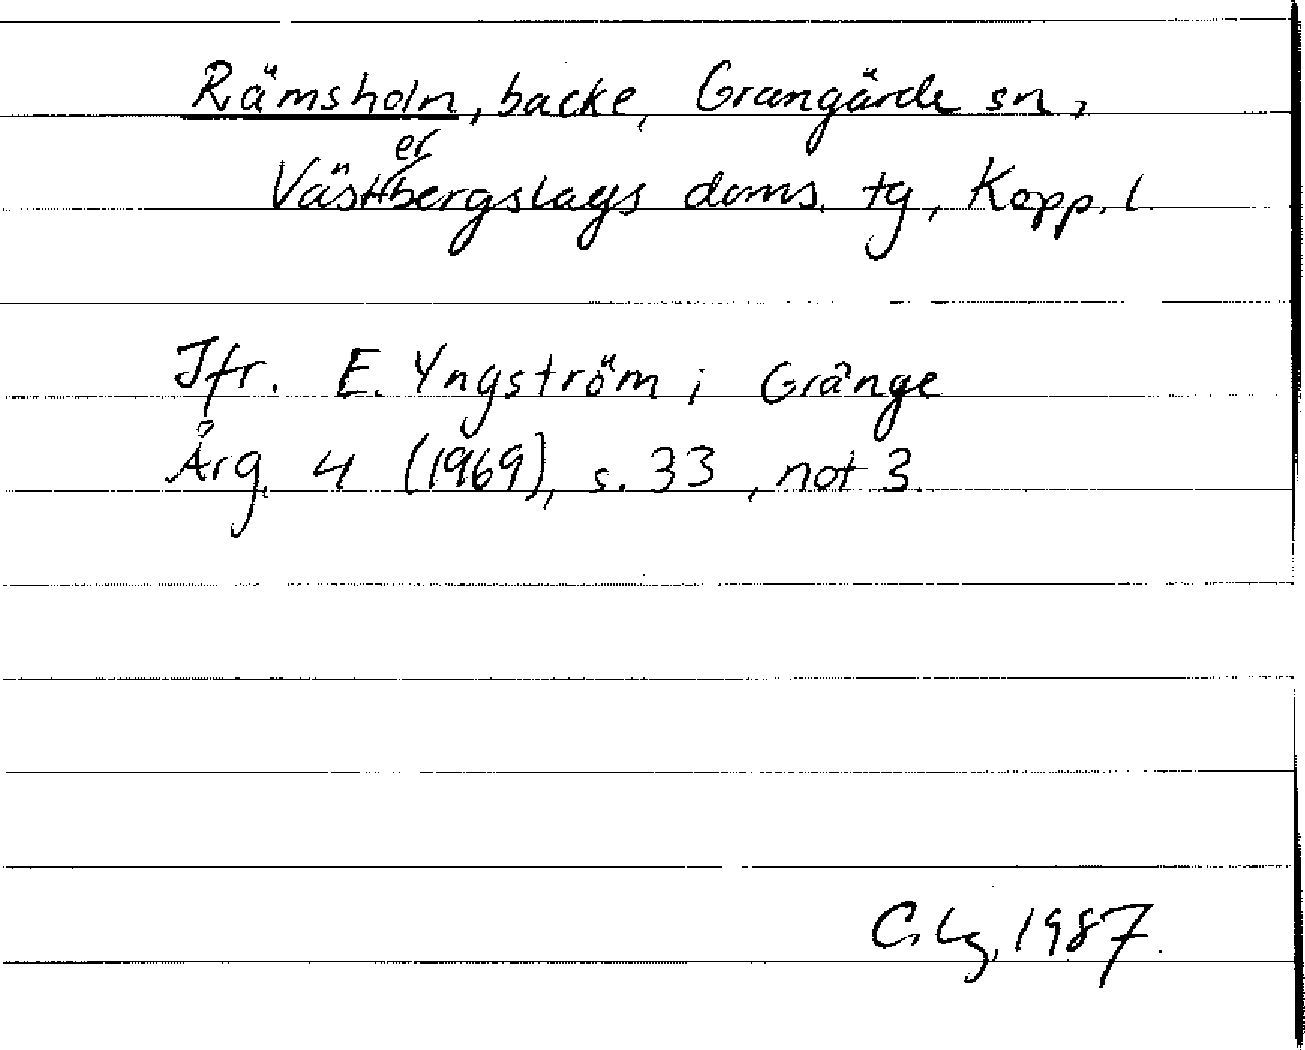 Rämsholn, backe, Grangärde sn,
Västerbergslags doms. tg, Kopp. l.
Jfr. E. Yngström i Gränge
Årg. 4 (1969), s. 33, not 3.
1987.